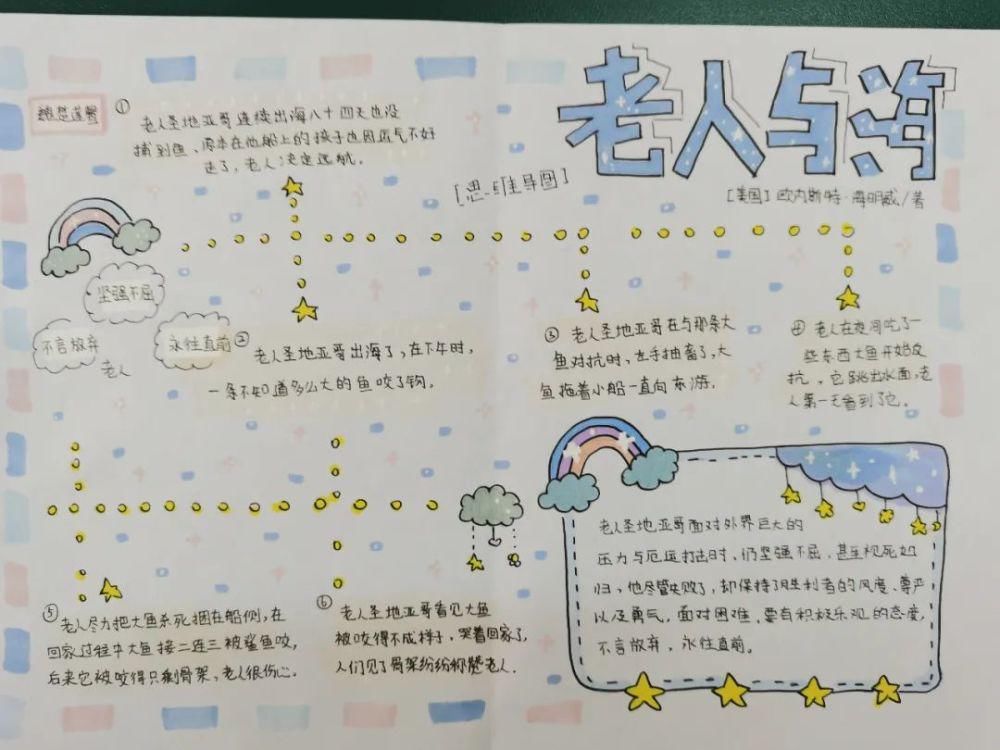 老人与海
[美国]欧内斯特·海明威/著
[思维导图]
①
老人圣地亚哥连续出海八十四天也没
捕到鱼、原本在他船上的孩子也因运气不好
走了，老人决定远航。
坚强不屈
不言放弃
永往直前
老人
② 老人圣地亚哥出海了，在下午时，
一条不知道多么大的鱼咬了钩。
③ 老人圣地亚哥在与那条大
鱼对抗时，左手抽畜了，大
鱼拖着小船一直向东游。
④ 老人在夜间吃了一
些东西大鱼开始反
抗，它跳出水面，老
人第一天看到了它。
⑤ 老人尽力把大鱼杀死捆在船侧，在
回家过程中大鱼接二连三被鲨鱼咬，
后来它被咬得只剩骨架，老人很伤心。
⑥ 老人圣地亚哥看见大鱼
被咬得不成样子，哭着回家了，
人们见了骨架纷纷称赞老人.
老人圣地亚哥面对外界巨大的
压力与厄运打击时、仍坚强不屈、甚至视死如
归，他尽管失败了，却保持了胜利者的风度、尊严
以及勇气。面对困难，要有积极乐观的态度，
不言放弃，永往直前。